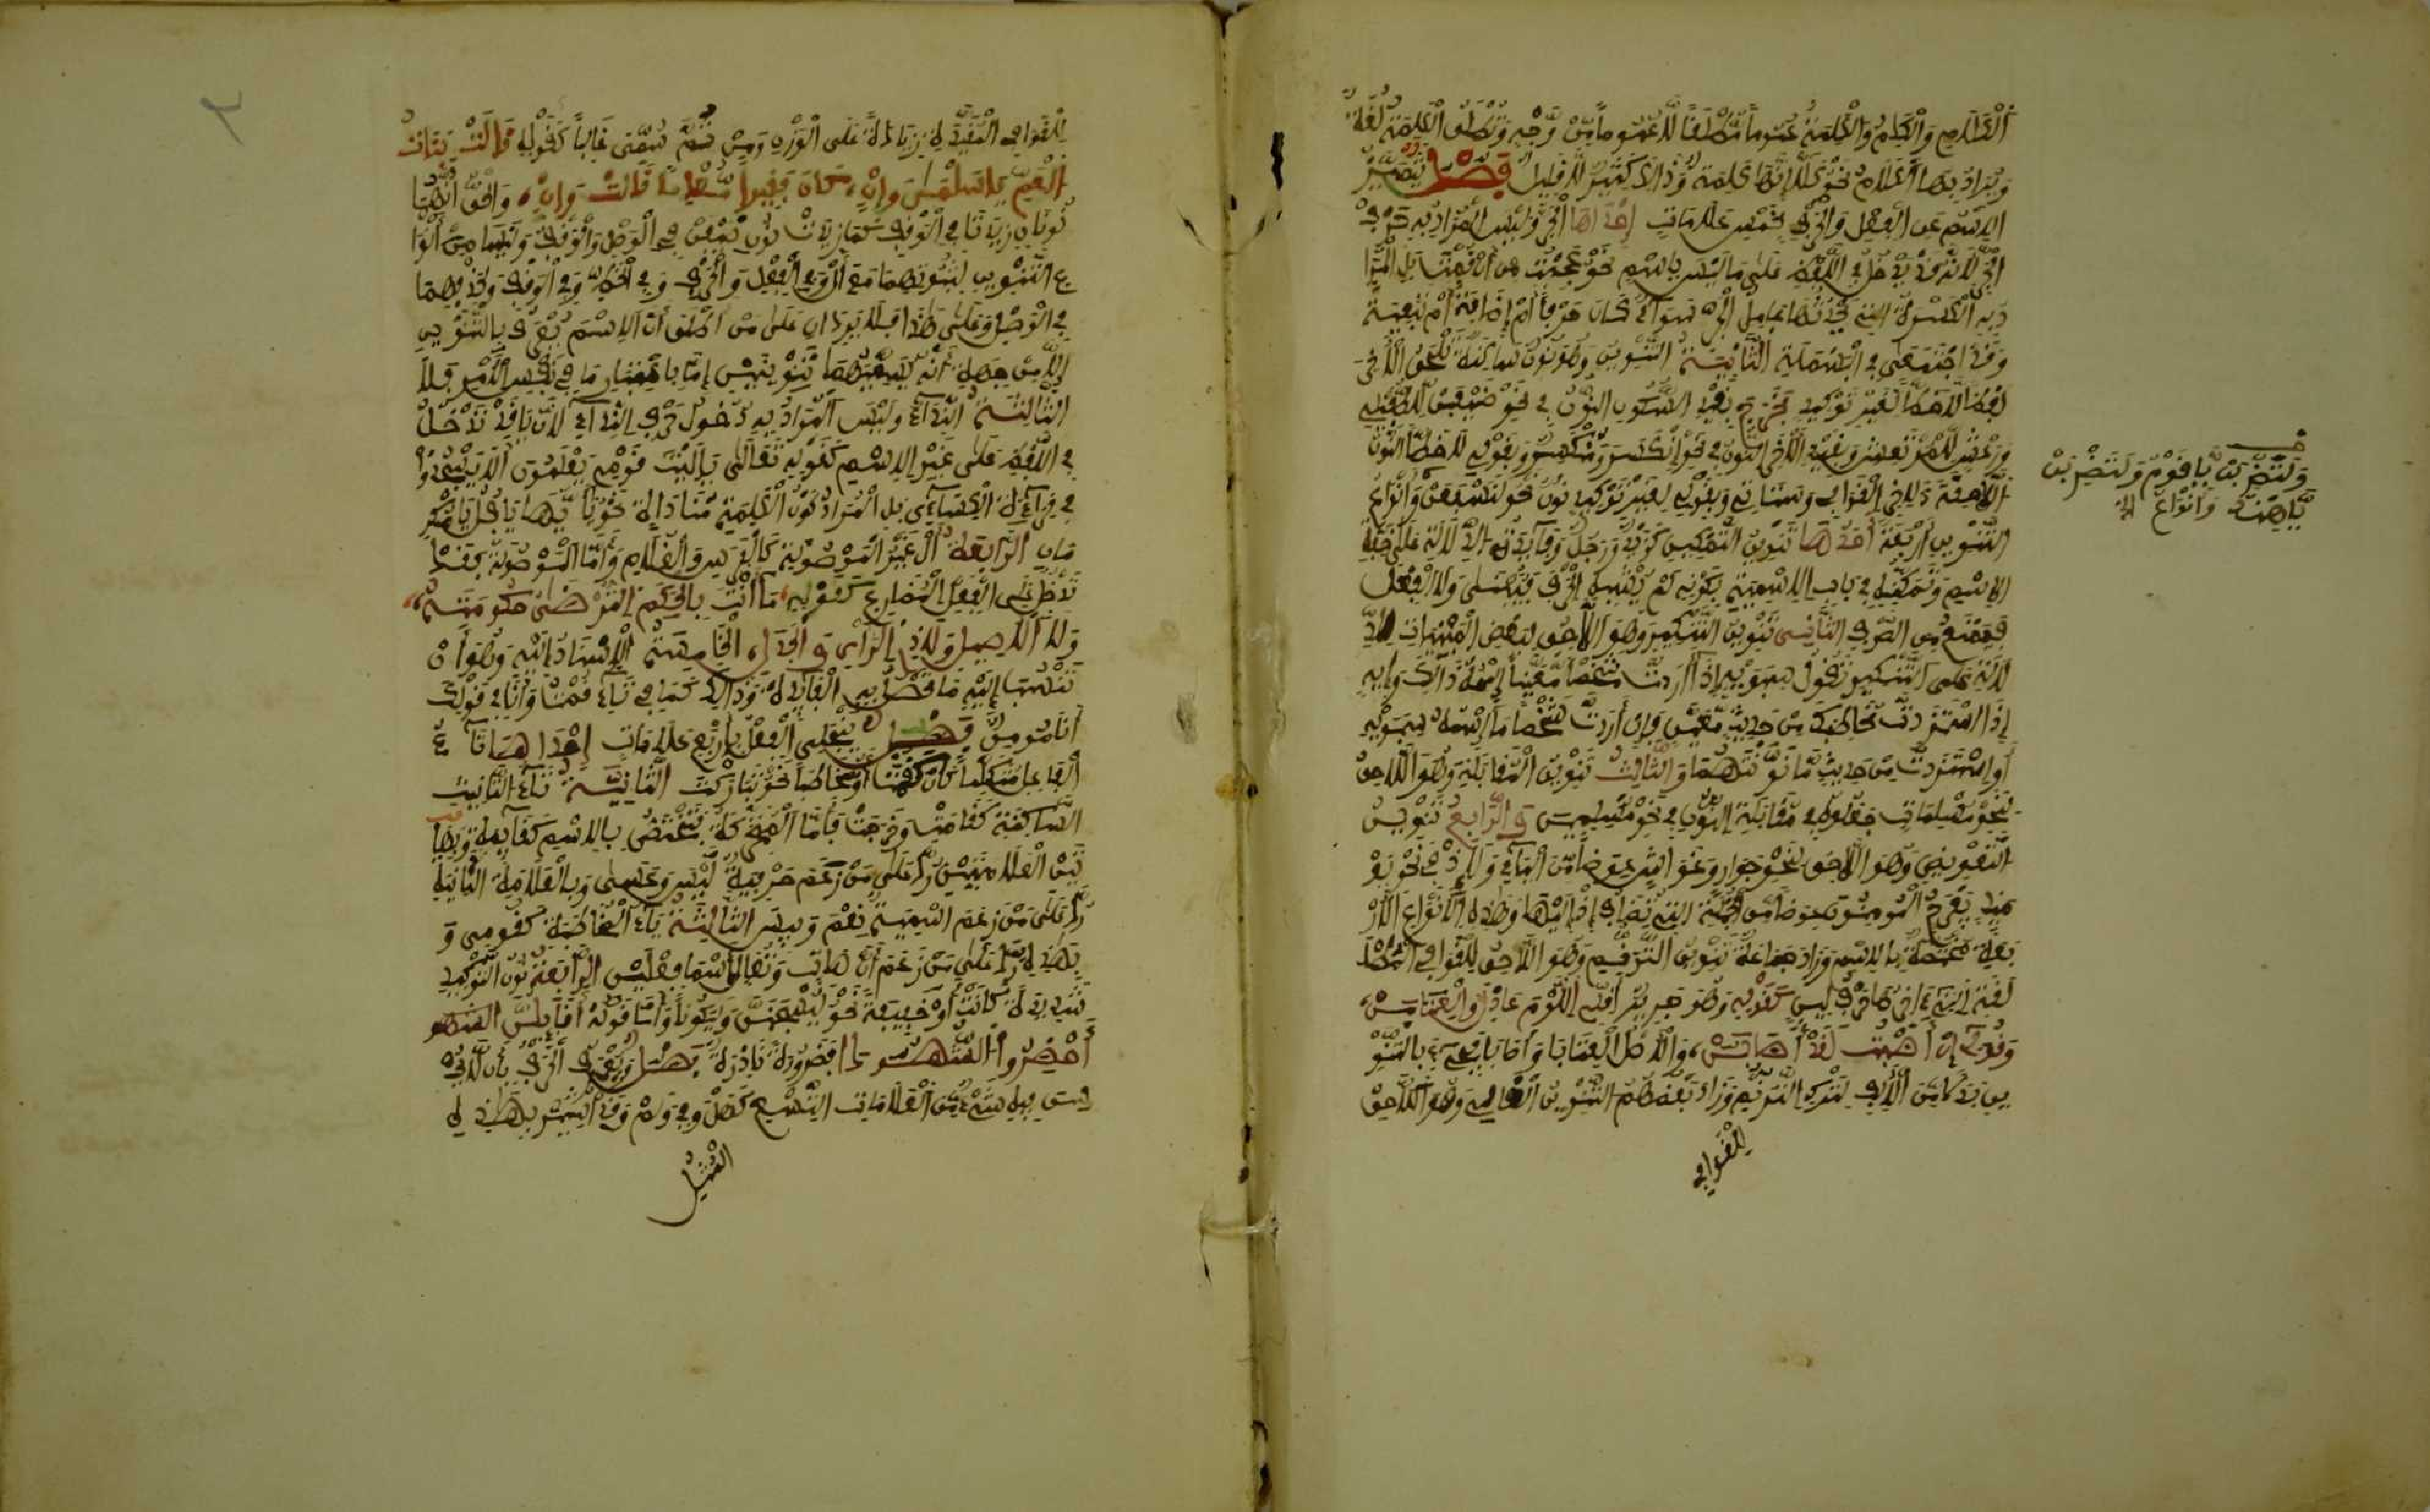 الكلام والكلم والكلمة عموما مطلقا لا عموما من وجه وتطلق الكلمة لغة
ويراد بها الكلام نحو كلا إنها كلمة وذالك كثير لا قليل فصل يتميز
الاسم عن الفعل والحرف بخمس علامات إحداها الجر وليس المراد به حرف
الجر لأنه قد يدخل في اللفظ على ما ليس باسم نحو عجبت من أن قمت بل المرا
د به الكسرة التي يحدثها عامل الجر سواء كان حرفا أم إضافة أم تبعية
وقد اجتمعن في البسملة الثانية التنوين وهو نون ساكنة تلحق الآخر
لفظا لا خطا لغير توكيد فخرج بقيد السكون النون في نحو ضيفن للطفيلي
ورعشن للمرتعش وبقيد الآخر النون في نحو انكسر ومنكسر وبقولي لا خطا النون
اللاحقة لآخر القوافي وستأتي وبقولي لغير توكيد نون نحو لنسفعن وأنواع
التنوين أربعة أحدها تنوين التمكين كزيد ورجل وفائدته الدلالة على خفة
الاسم وتمكنه في باب الاسمية لكونه لم يشبه الحرف فيبنى ولا الفعل
فيمنع من الصرف الثاني تنوين التنكير وهو اللاحق لبعض المبنيات للد
لالة على التنكير تقول سيبويه إذا أردت شخصا معينا اسمه ذالك وإيه
إذا استزدت مخاطبك من حديث معين فإن أردت شخصا ما اسمه سيبويه
أو استزدت من حديث ما نونتهما والثالث تنوين المقابلة وهو اللاحق
لنحو مسلمات جعلوه في مقابلة النون في نحو مسلمين والرابع تنوين
التعويض وهو اللاحق لنحو جوار وغواش عوضا من الياء ولإذ في نحو يو
مئذ يفرح المومنون عوضا من الجملة التي تضاف إذ إليها وهذه الأنواع الأر
بعة مختصة بالاسم وزاد جماعة تنوين الترنم وهو اللاحق للقوافي المطلـ
لقة أي التي آخرها حرف لين كقوله وهو جرير أقلي اللوم عاذل والعتابن
وقولي إن أصبت لقد أصابن، والأصل العتابا وأصابا فجيء بالتنو
ين بدلا من الألف لترك الترنم وزاد بعضهم التنوين الغالي وهو اللاحق
للقوافي
ولتضربن يا قوم ولتضربن
يا هند وأنواع الخ
للقوافي المقيدة زيادة على الوزن ومن ثم سمي غاليا كقوله قالت بنات
العم يا سلمى وإنن، كان فقيرا معدما قالت وإنن، والحق أنهما
نونان زيدتا في الوقف كما زيدت نون ضيفن في الوصل والوقف وليسا من أنوا
ع التنوين لثبوتهما مع أل وفي الفعل والحرف وفي الخط وفي الوقف وحذفهما
في الوصل وعلى هذا فلا يردان على من أطلق أن الاسم يعرف بالتنوين
إلا من جهة أنه يسميهما تنوينين إما باعتبار ما في نفس الأمر فلا
الثالثة النداء وليس المراد به دخول حرف النداء لأن يا قد تدخل
في اللفظ على غير الاسم كقوله تعالى يا ليت قومي يعلمون ألا يسجدوا
في قراءة الكسائي بل المراد كون الكلمة مناداة نحو يا أيها يا فل يا مكر
مان الرابعة أل غير الموصولة كالفرس والغلام وأما الموصولة فقد
تدخل على الفعل المضارع كقوله ما أنت بالحكم الترضى حكومته،
ولا الأصيل ولا ذي الرأي والجدل، الخامسة الإسناد إليه وهو أن
تنسب إليه ما تحصل به الفائدة وذالك كما في تاء قمت وأنا في قولك
أنا مومن فصل ينجلي الفعل بأربع علامات إحداها تاء
الفاعل متكلما كان كقمت أو مخاطبا نحو تباركت الثانية تاء التأنيث
الساكنة كقامت وخرجت فأما المتحركة فتختص بالاسم كقائمة وبها
تين العلامتين رد على من زعم حرفية ليس وعسى وبالعلامة الثانية
رد على من زعم اسمية نعم وبيس الثالثة ياء المخاطبة كقومي و
بهذه رد على من زعم أن هات وتعالى اسما فعلين الرابعة نون التوكيد
شديدة كانت أو خفيفة نحو ليسجنن وليكونا وأما قوله أقائلن
أحضروا الشهودا فضرورة نادرة فصل ويعرف الحرف بأن لا يحـ
سن فيه شيء من العلامات التسع كهل وفي ولم وقد أشير بهذه
المثل